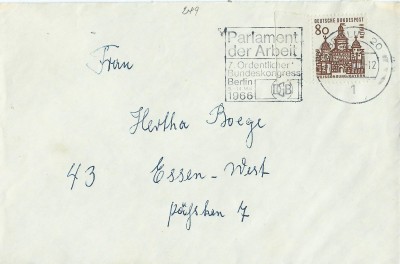 Parlament
der Arbeit
7. Ordentlicher
Bundeskongress
Berlin
1966
DGB
DEUTSCHE BUNDESPOST
80
20
1
Frau
Hertha Boege
43 Essen-West
7